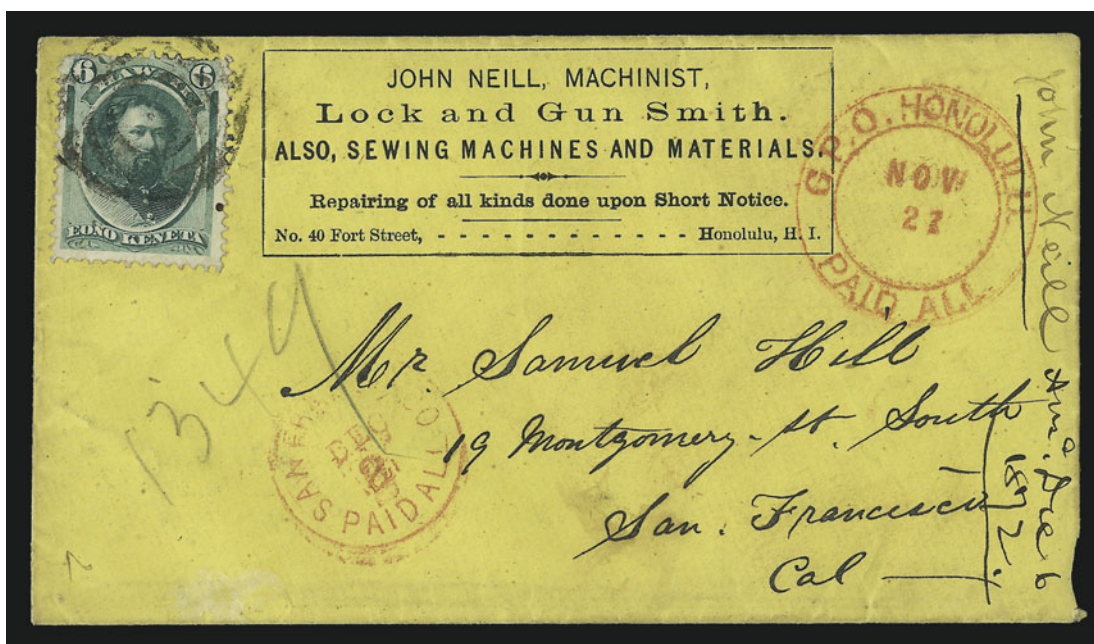 6 6
EONO KENETA
JOHN NEILL, MACHINIST,
Lock and Gun Smith.
ALSO, SEWING MACHINES AND MATERIALS.
Repairing of all kinds done upon Short Notice.
No. 40 Fort Street, - - - - - - - - - - - - Honolulu, H. I.
G.P.O. HONOLULU.
NOV
27
PAID ALL
John Neill
Dec 6
1872.
1349
Mr. Samuel Hill
19 Montgomery-St. South
San. Francisco
Cal
SAN FRANCISCO
DEC
PAID ALL